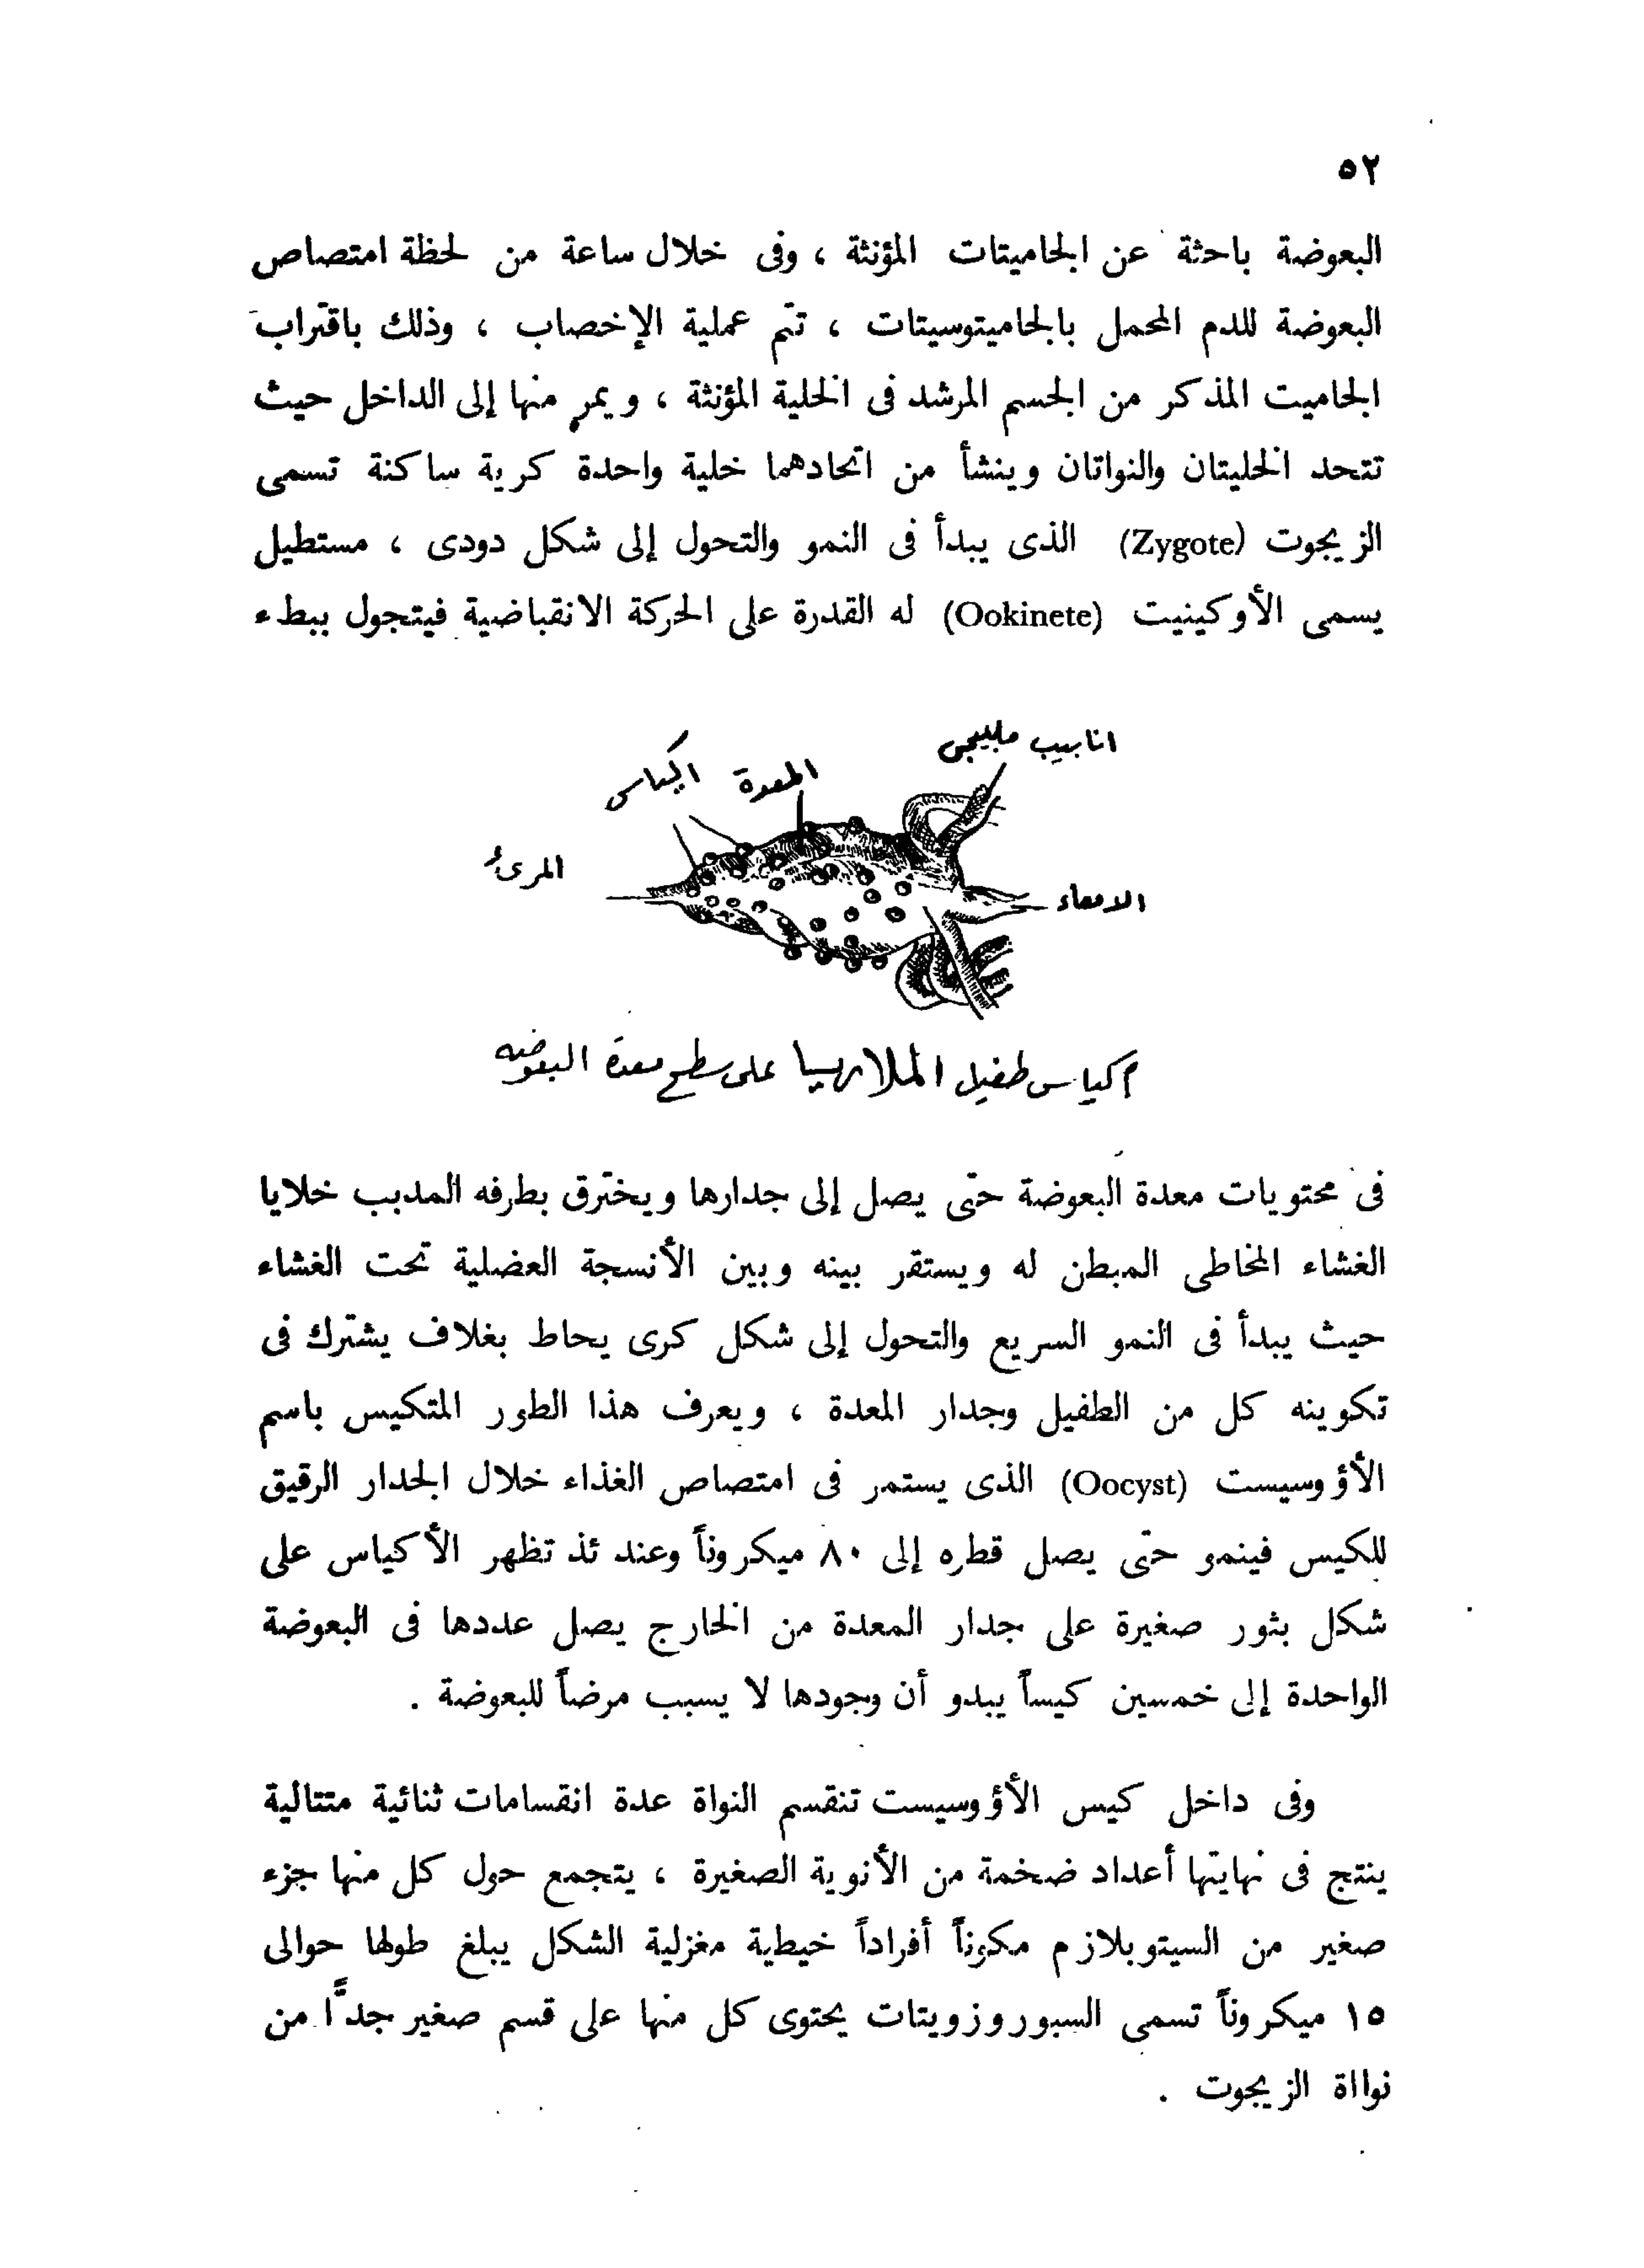 ٥٢
البعوضة باحثة عن الجاميتات المؤنثة ، وفى خلال ساعة من لحظة امتصاص
البعوضة للدم المحمل بالجاميتوسيتات ، تتم عملية الإخصاب ، وذلك باقتراب
الجاميت المذكر من الجسم المرشد فى الخلية المؤنثة ، ويمر منها إلى الداخل حيث
تتحد الخليتان والنواتان وينشأ من اتحادهما خلية واحدة كرية ساكنة تسمى
الزيجوت (Zygote) الذى يبدأ فى النمو والتحول إلى شكل دودى ، مستطيل
يسمى الأوكينيت (Ookinete) له القدرة على الحركة الانقباضية فيتجول ببطء
انابيب ملبيجى
المعدة
اكياس
المرئ
الامعاء
أكياس طفيل الملاريا على سطح معدة البعوضه
فى محتويات معدة البعوضة حتى يصل إلى جدارها ويخترق بطرفه المدبب خلايا
الغشاء المخاطى المبطن له ويستقر بينه وبين الأنسجة العضلية تحت الغشاء
حيث يبدأ فى النمو السريع والتحول إلى شكل كرى يحاط بغلاف يشترك فى
تكوينه كل من الطفيل وجدار المعدة ، ويعرف هذا الطور المتكيس باسم
الأؤوسيست (Oocyst) الذى يستمر فى امتصاص الغذاء خلال الجدار الرقيق
للكيس فينمو حتى يصل قطره إلى ٨٠ ميكروناً وعند ئذ تظهر الأكياس على
شكل بثور صغيرة على جدار المعدة من الخارج يصل عددها فى البعوضة
الواحدة إلى خمسين كيساً يبدو أن وجودها لا يسبب مرضاً للبعوضة .
وفى داخل كيس الأؤوسيست تنقسم النواة عدة انقسامات ثنائية متتالية
ينتج فى نهايتها أعداد ضخمة من الأنوية الصغيرة ، يتجمع حول كل منها جزء
صغير من السيتوبلازم مكوناً أفراداً خيطية مغزلية الشكل يبلغ طولها حوالى
١٥ ميكروناً تسمى السبوروزويتات يحتوى كل منها على قسم صغير جدًّا من
نوااة الزيجوت .